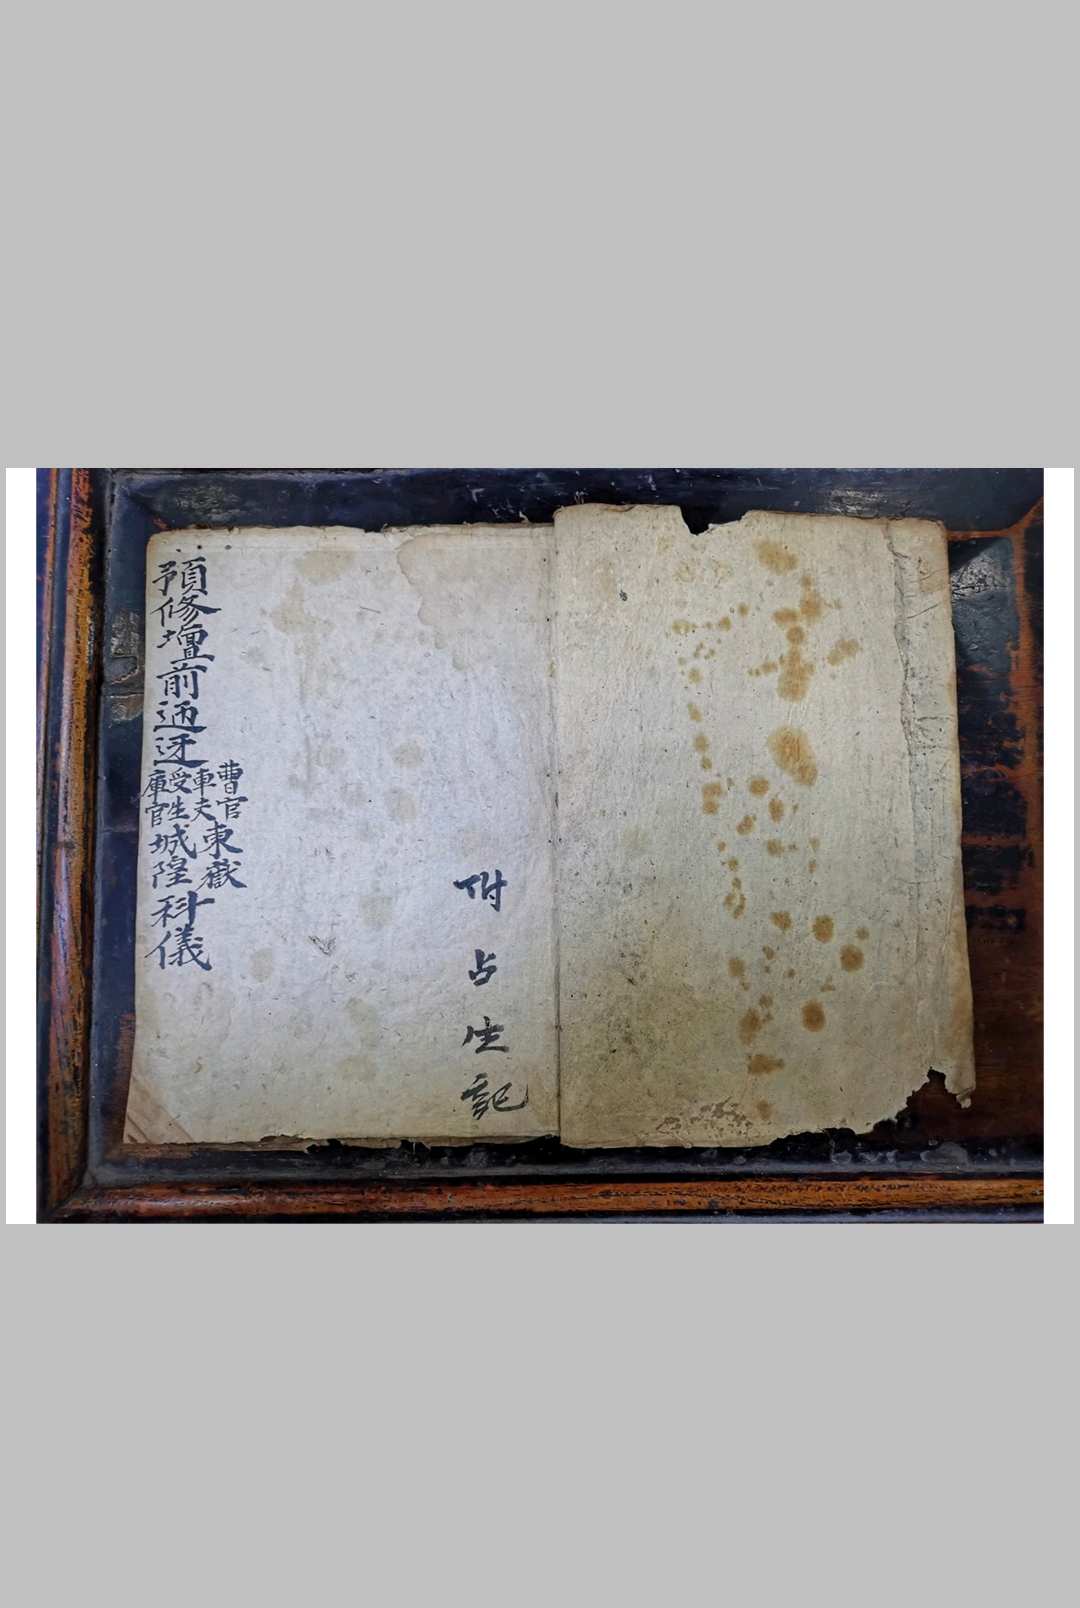 附占生記
預修壇前迺迓
曹官
車夫
受生
庫官
東嶽
城隍
科儀